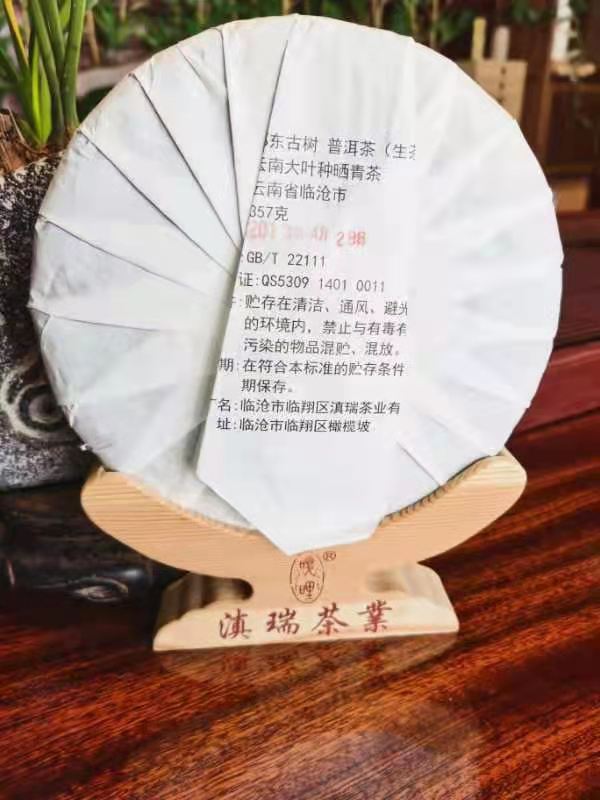 东古树 普洱茶（生茶
云南大叶种晒青茶
云南省临沧市
357克
:GB/T 22111
证:QS5309 1401 0011
:贮存在清洁、通风、避光
的环境内，禁止与有毒有
污染的物品混贮、混放。
期:在符合本标准的贮存条件
期保存。
名:临沧市临翔区滇瑞茶业有
址:临沧市临翔区橄榄坡
®
滇瑞茶業